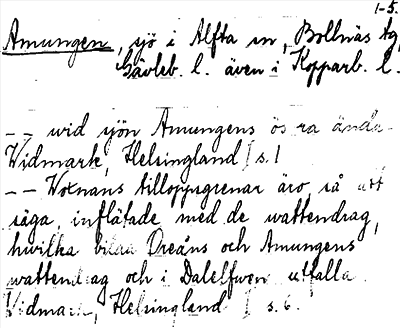 1-5.
Amungen, sjö i Alfta sn, Bollnäs tg,
Gävleb. l. även i Kopparb. l.
-- wid sjön Amungens ös ra ända
Widmark, Helsingland I s. 1
-- Woxnans tilloppsgrenar äro, så att
säga, inflätade med de wattendrag,
hwilka bilda Oreåns och Amungens
wattendrag och i Dalelfwen utfalla.
Widmark, Helsingland I s. 6.